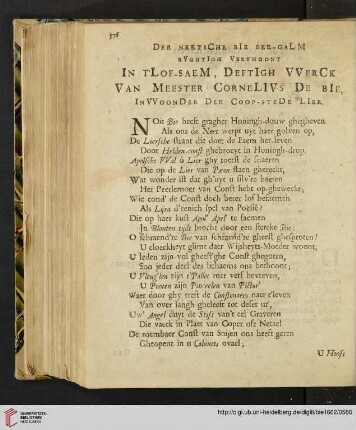 376
Der neetsche bie eer-galm
rvghtigh verthoont
In t'Lof-saem, deftigh vverck
Van Meester CorneLIVs De bie,
InvvoonDer Der Coop-steDe LIer.
NOit Bie heeft gragher Honingh-douw ghegheven
Als ons de Neet werpt uyt haer golven op,
De Liersche staant die doet de Faem her-leven
Door Helden-const ghebroeyt in Honingh-drop.
Apolsche VVal is Lier ghy toetst de snaeren
Die op de Lier van Pæan staen ghereckt,
Wat wonder ist dat gh'uyt u silv're baeren
Het Peerlemoer van Const hebt op-ghewecks;
Wie cond' de Const doch beter lof behaemen
Als Lijra d'eenich spel van Poësie?
Die op haer kust Apol' Apel' te saemen
In Blonten tijdt brocht door een stercke Bie;
O schraend're Bie van schrand're gheest ghesproten!
U cloeckheyt glimt daer Wijsheyts-Moeder woont,
U leden zijn vol gheest'ghe Const ghegoten,
Soo jeder deel des lichaems ons bethoont,
U Vleug'len zijn t'Pallet met verf bestreven,
U Pooten zijn Pinceelen van Pictur'
Waer door ghy treft de Constenaers naer t'leven
Van over langh gheleeft tot deser ur,
Uw' Angel duyt de Stift van't eel Graveren
Die vaeck in Plaet van Coper oft Metael
De roembaer Const van Snijen ons heeft geren
Gheopent in u Cabinets ovael;
U Hoofs
UNIVERSITÄTS-
BIBLIOTHEK
HEIDELBERG
http://digi.ub.uni-heidelberg.de/diglit/bie1662/0566